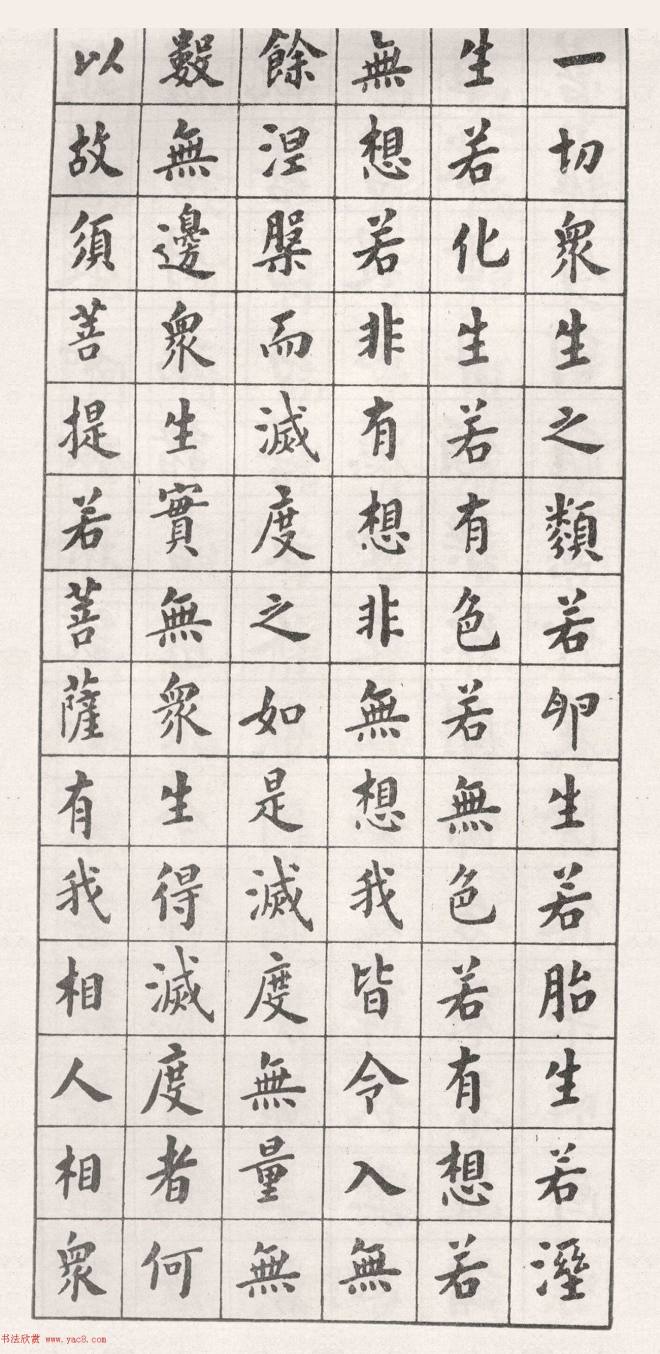 一切衆生之類若卵生若胎生若溼
生若化生若有色若無色若有想若
無想若非有想非無想我皆令入無
餘涅槃而滅度之如是滅度無量無
數無邊衆生實無衆生得滅度者何
以故須菩提若菩薩有我相人相衆
书法欣赏 www.yac8.com